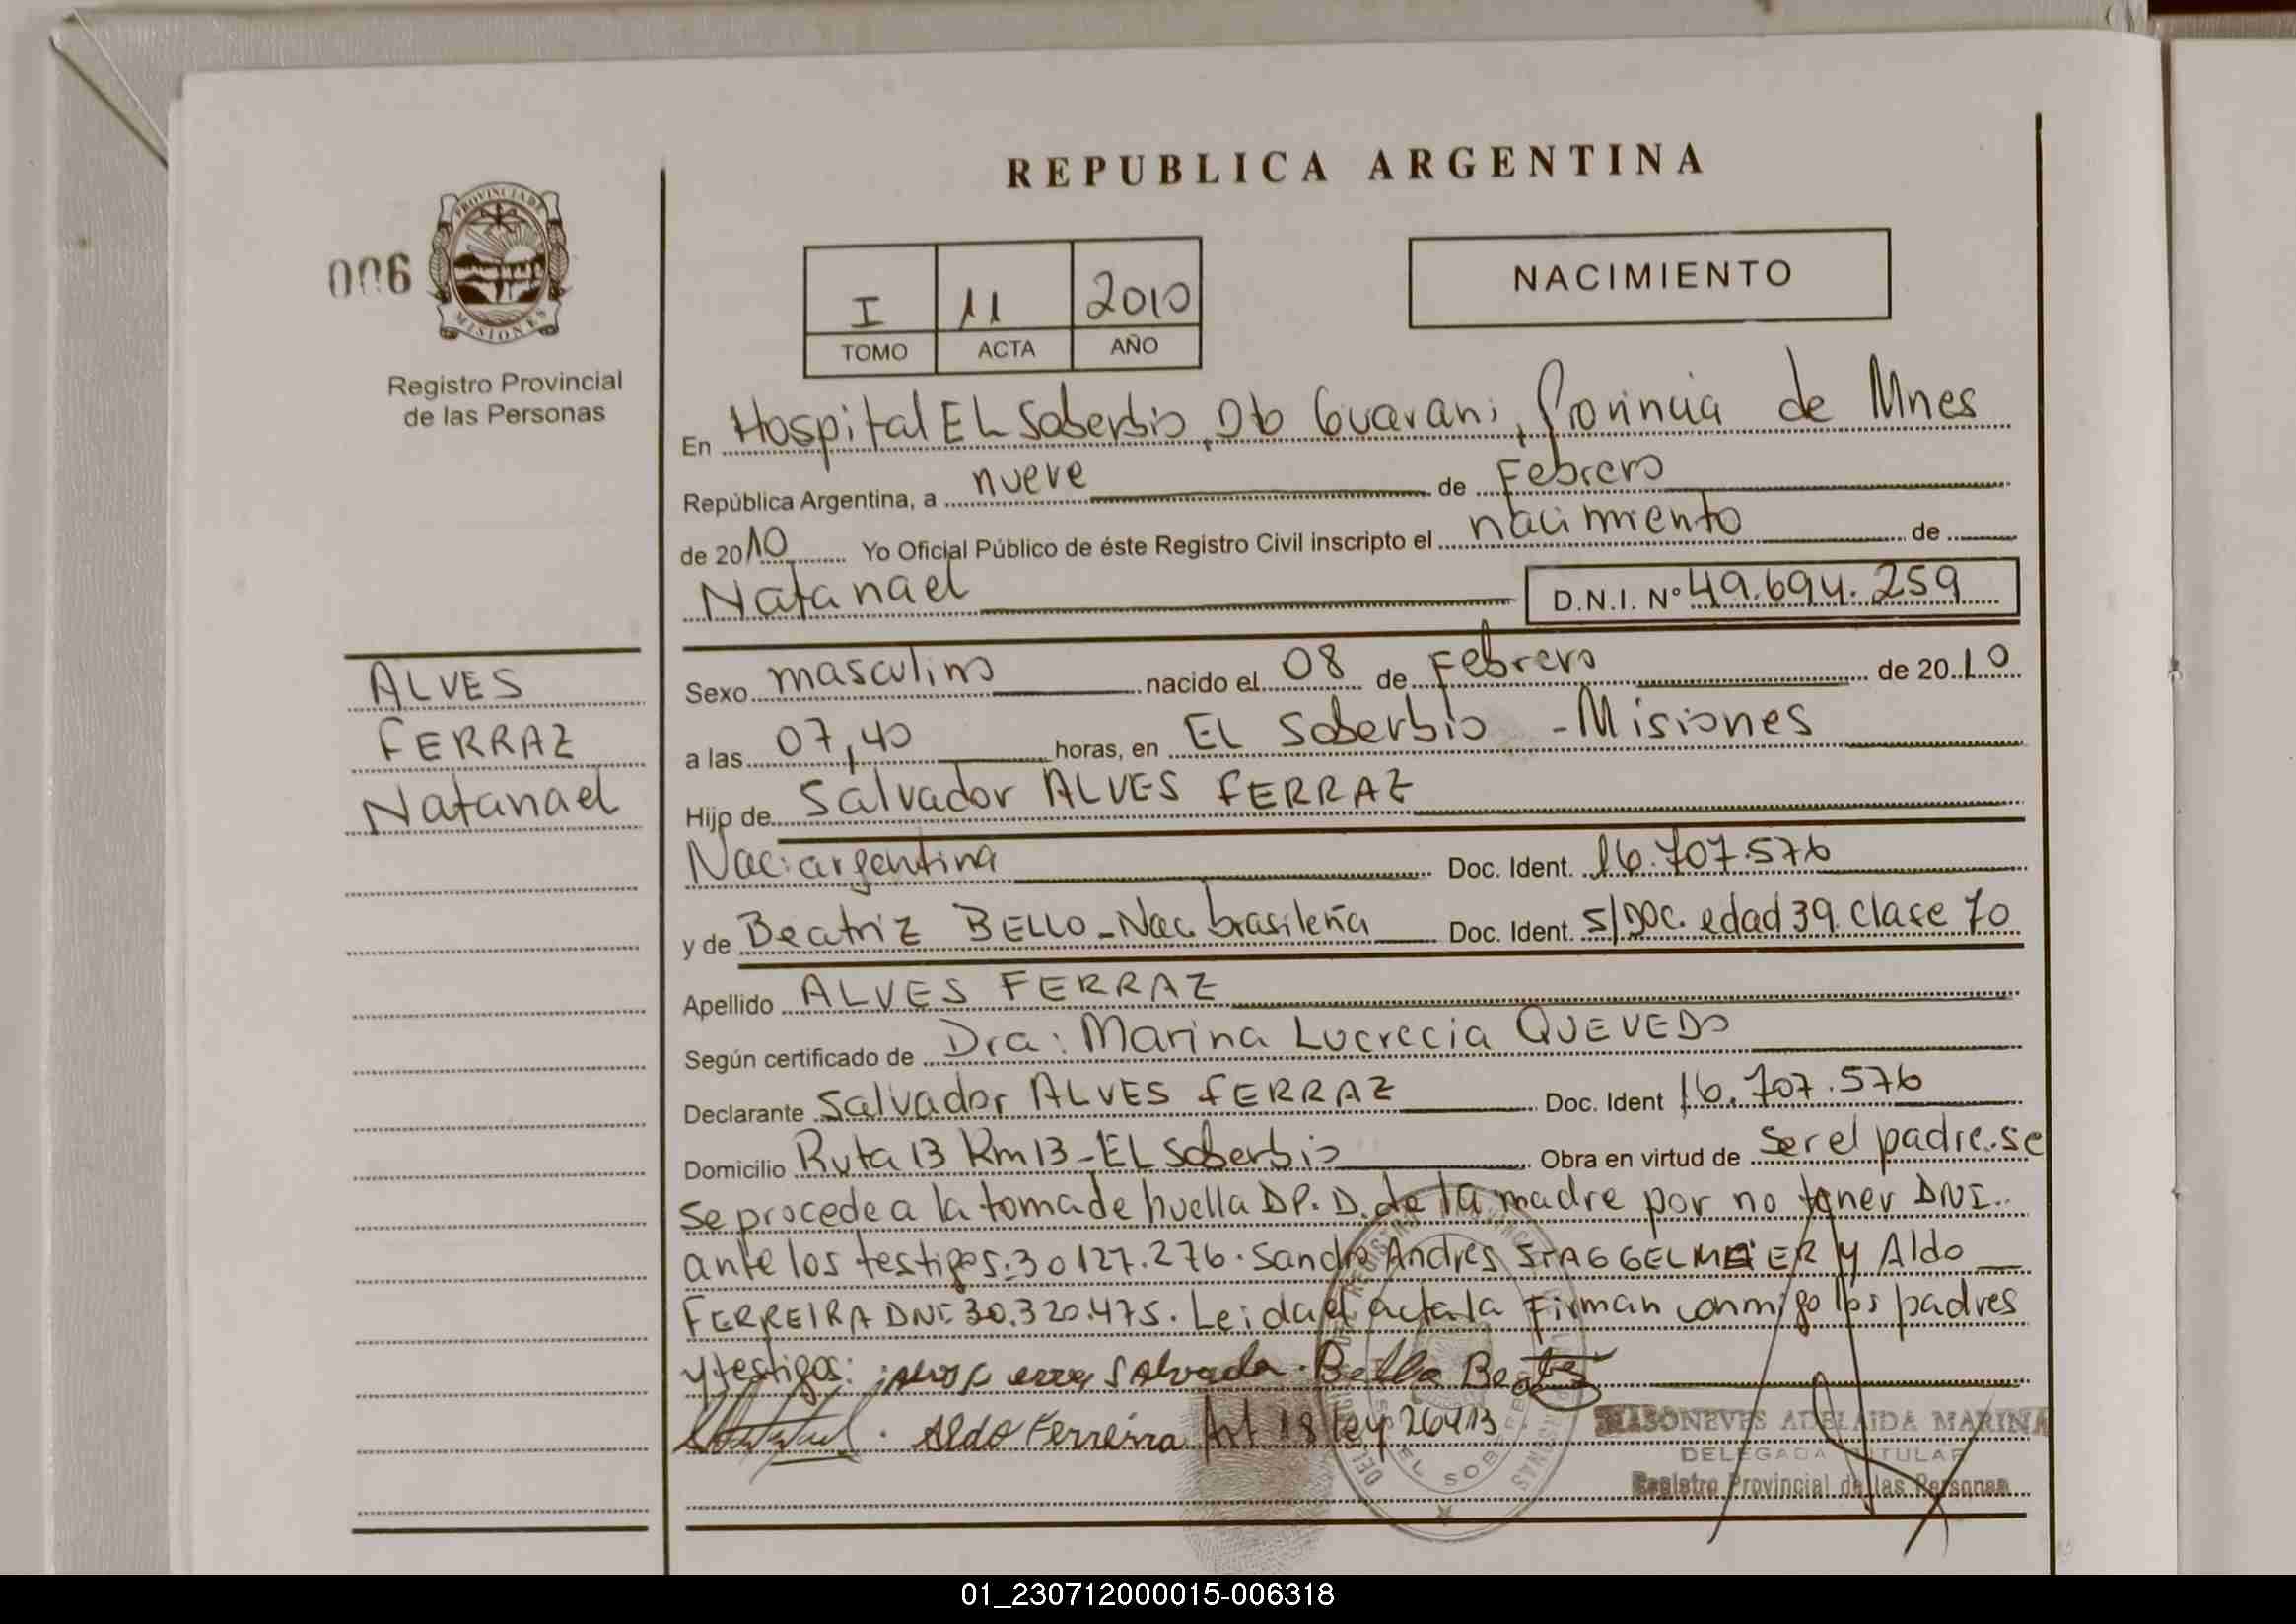 REPUBLICA ARGENTINA
006
PROVINCIA DE
MISIONES
Registro Provincial
de las Personas
I 11 2010
TOMO ACTA AÑO
NACIMIENTO
En Hospital EL Soberbio, Dto Guarani, Provincia de Mnes
República Argentina, a nueve de Febrero
de 2010 Yo Oficial Público de éste Registro Civil inscripto el nacimiento de
Natanael D.N.I. Nº 49.694.259
ALVES
FERRAZ
Natanael
Sexo masculino nacido el 08 de Febrero de 2010
a las 07,40 horas, en EL Soberbio - Misiones
Hijo de Salvador ALVES FERRAZ
Nac: argentina Doc. Ident. 16.707.576
y de Beatriz BELLO - Nac. brasileña Doc. Ident. S/DOC. edad 39. clase 70
Apellido ALVES FERRAZ
Según certificado de Dra: Marina Lucrecia QUEVEDO
Declarante Salvador ALVES FERRAZ Doc. Ident 16.707.576
Domicilio Ruta 13 Km 13 - EL Soberbio Obra en virtud de Ser el padre. se
se procede a la toma de huella DP. D. de la madre por no tener DNI.
ante los testigos: 30127.276. Sandro Andres STAGGELMEIER y Aldo
FERREIRA DNI 30.320.475. Leida el acta la Firman conmigo los padres
y testigos: Salvador. Bello Beatriz
Aldo Ferreira Art 18 ley 26413
MASONEVES ADELAIDA MARINA
DELEGADA TITULAR
Registro Provincial de las Personas
01_230712000015-006318